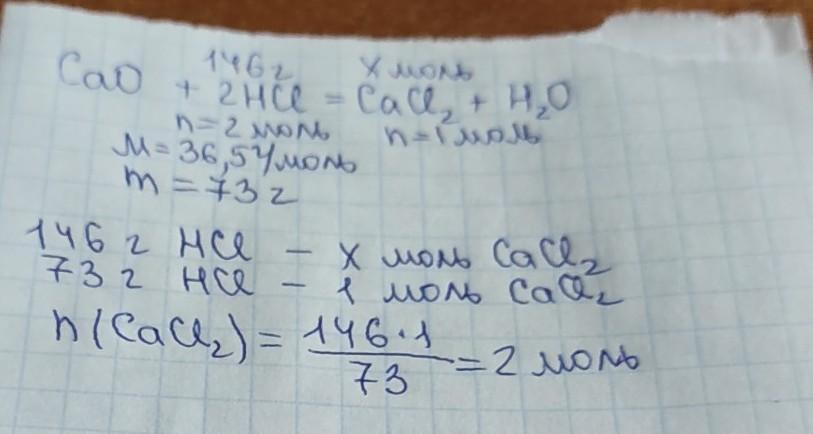 146г x моль
CaO + 2HCl = CaCl₂ + H₂O
n=2моль n=1моль
M=36,5г/моль
m=73г
146 г HCl – x моль CaCl₂
73 г HCl – 1 моль CaCl₂
n(CaCl₂) = 146·1/73 = 2 моль